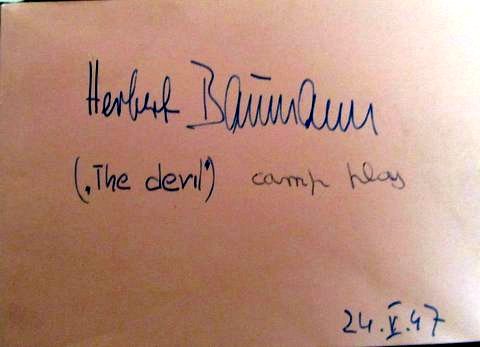 Herbert Baumann
(„The devil“) camp play
24.V.47